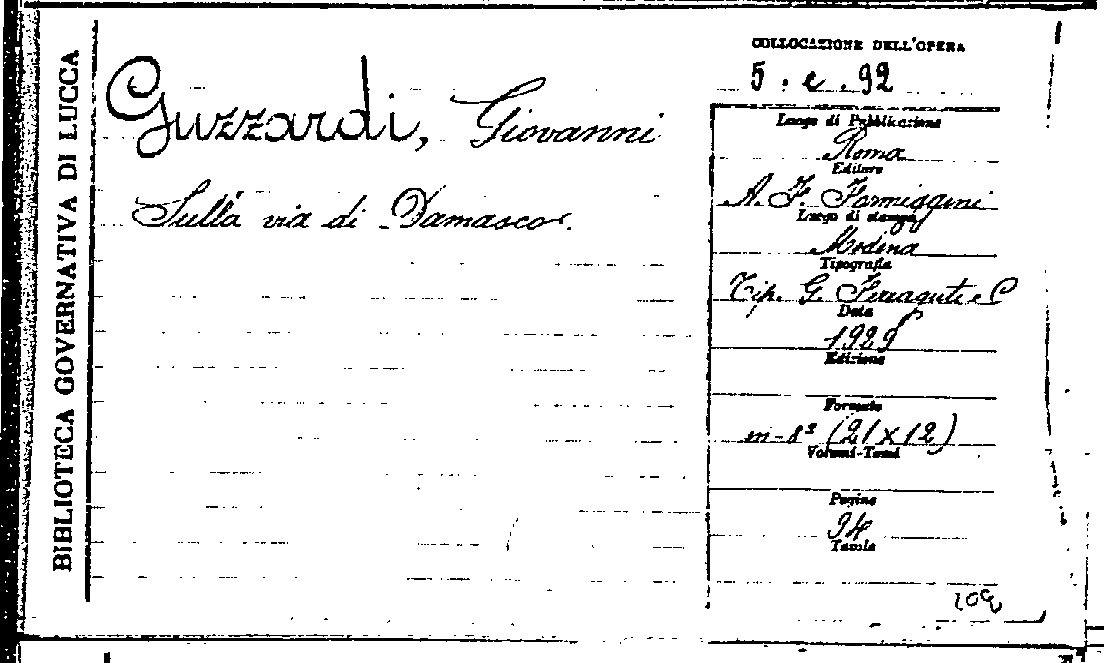 BIBLIOTECA GOVERNATIVA DI LUCCA
Guzzardi, Giovanni
Sulla via di Damasco.
COLLOCAZIONE DELL'OPERA
5. e. 92
Luogo di Pubblicazione
Roma
Editore
A. F. Formiggini
Luogo di stampa
Modena
Tipografia
Tip. G. Ferraguti e C
Data
1925
Edizione
Formato
in-8° (21x12)
Volumi-Tomi
Pagine
94
Tavole